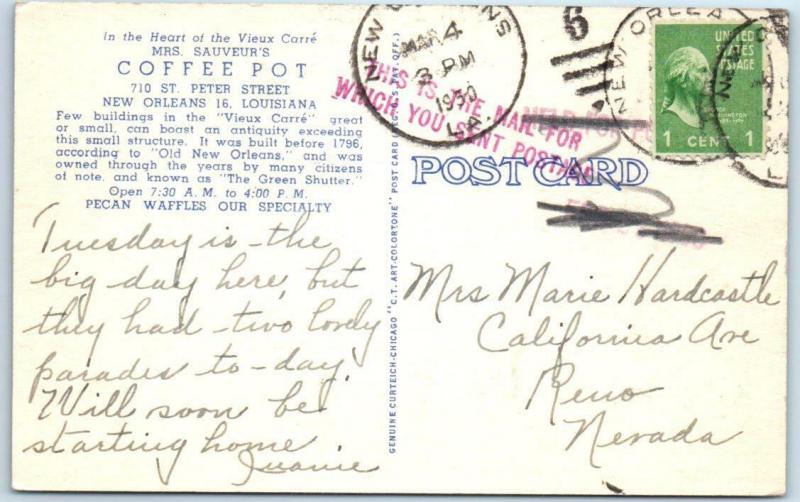 In the Heart of the Vieux Carré
MRS. SAUVEUR'S
COFFEE POT
710 ST. PETER STREET
NEW ORLEANS 16, LOUISIANA
Few buildings in the "Vieux Carré" great
or small, can boast an antiquity exceeding
this small structure. It was built before 1796,
according to "Old New Orleans," and was
owned through the years by many citizens
of note, and known as "The Green Shutter."
Open 7:30 A. M. to 4:00 P. M.
PECAN WAFFLES OUR SPECIALTY
Tuesday is the
big day here, but
they had two lovely
parades to-day.
Will soon be
starting home
Juanie
GENUINE CURTEICH-CHICAGO "C. T. ART-COLORTONE" POST CARD (REG. U. S. PAT. OFF.)
NEW ORLEANS
MAR 4
3 PM
1950
LA.
6
THIS IS THE MAIL FOR
WHICH YOU SENT POSTAGE
POST CARD
NEW ORLEA
UNITED
STATES
POSTAGE
1 CENT 1
Mrs Marie Hardcastle
California Ave
Reno
Nevada